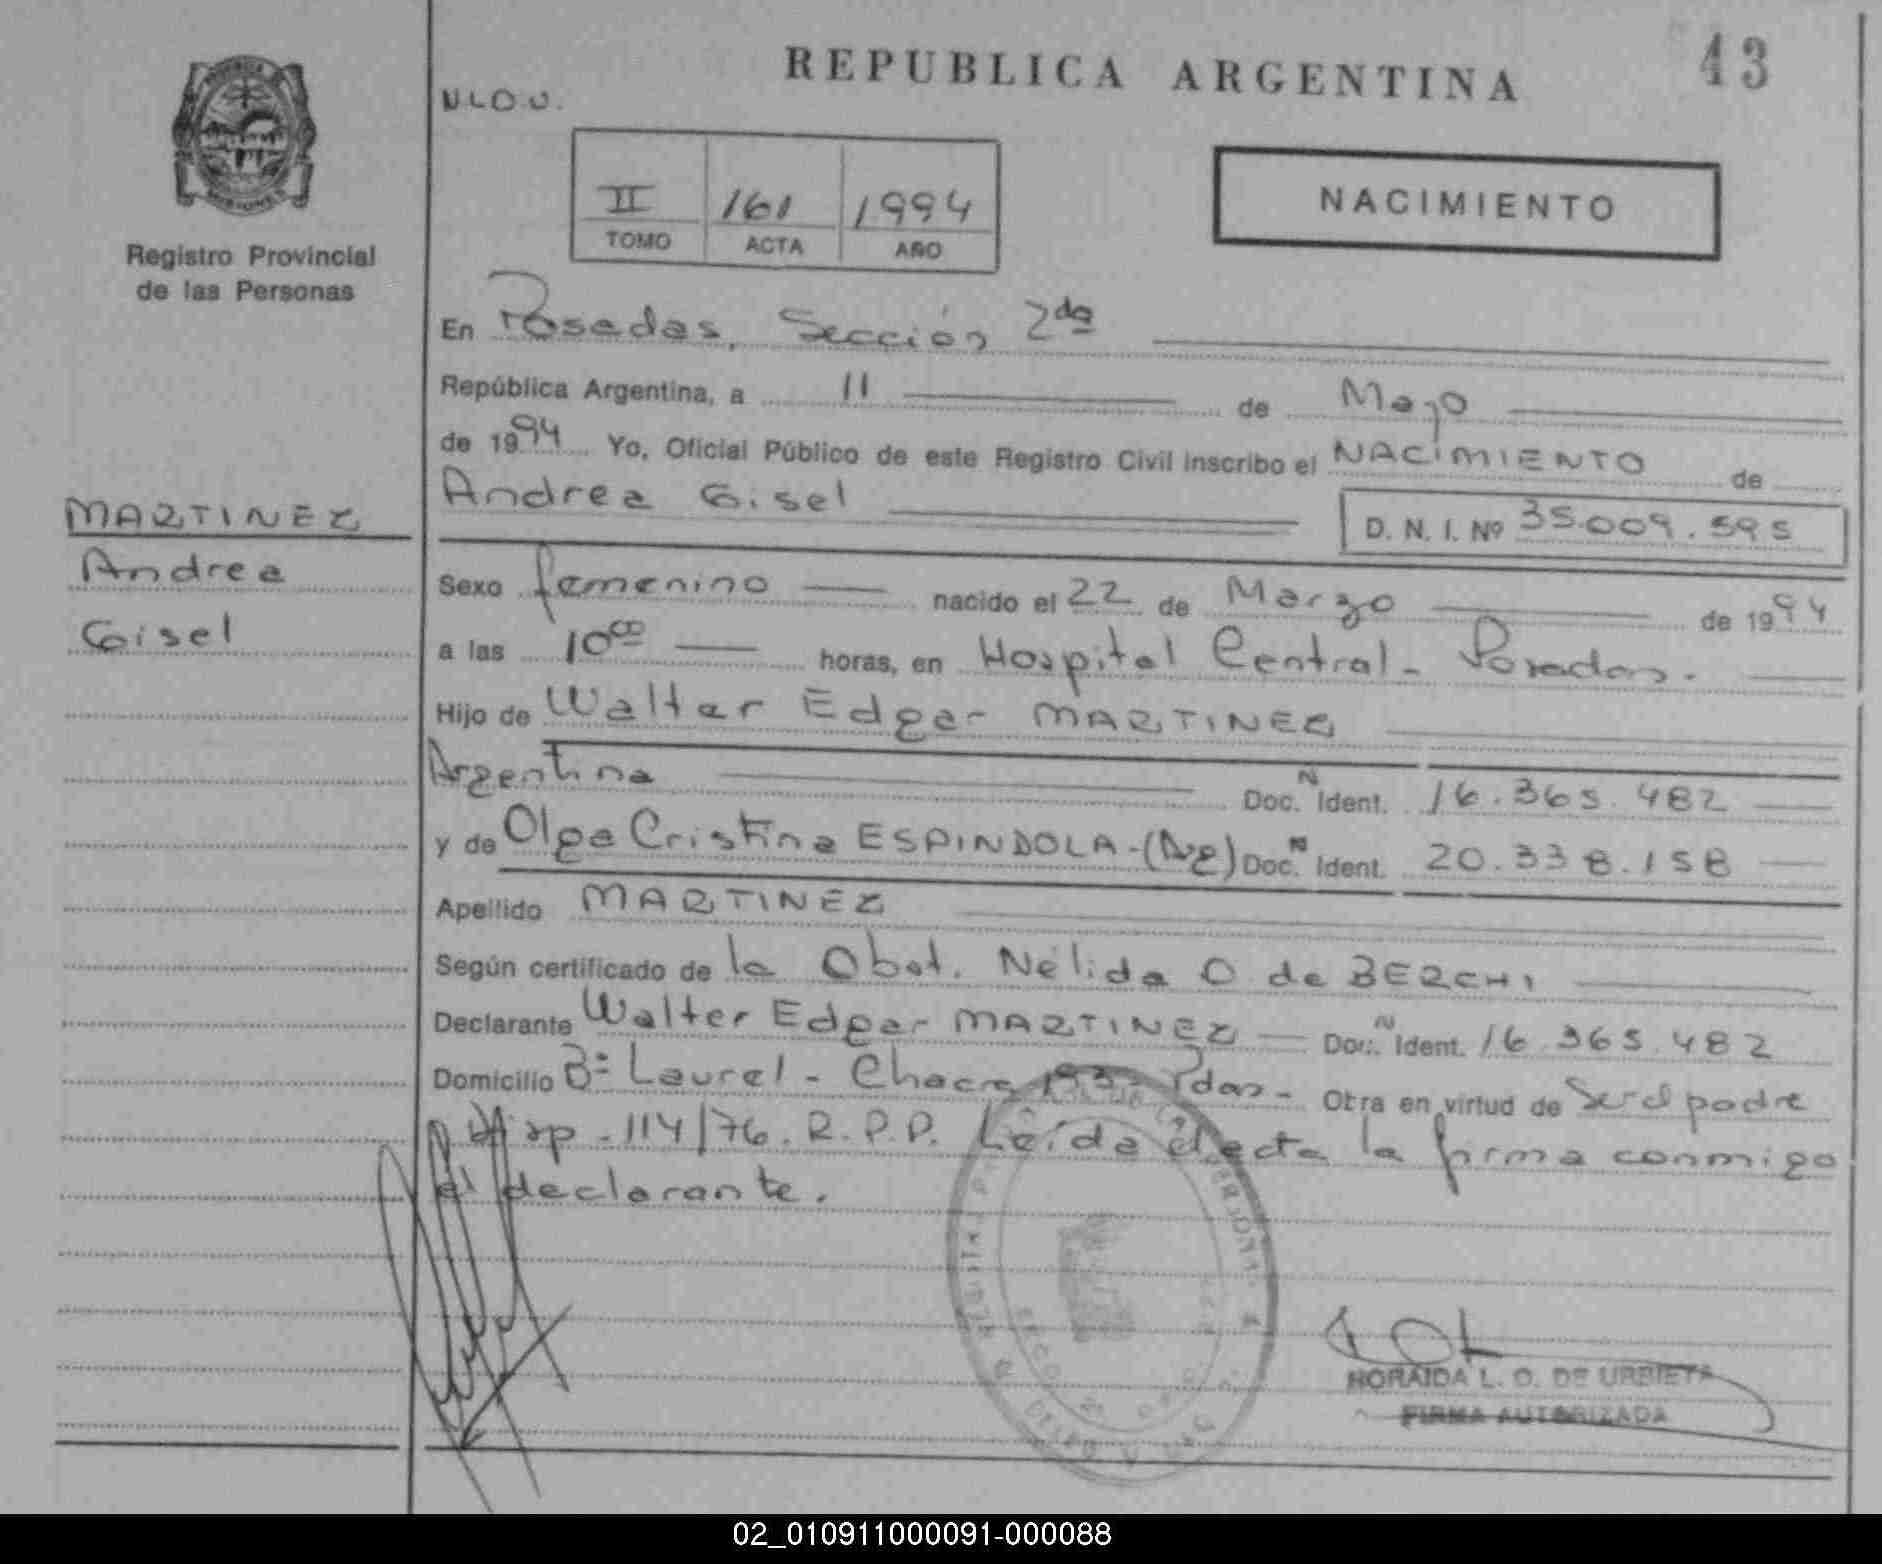 REPUBLICA ARGENTINA
43
N.L.O.U.
II 161 1994
TOMO ACTA AÑO
NACIMIENTO
Registro Provincial
de las Personas
En Posadas, Sección 2da
República Argentina, a 11 de Mayo
de 1994 Yo, Oficial Público de este Registro Civil inscribo el NACIMIENTO de
Andrea Gisel D. N. I. Nº 35.009.595
MARTINEZ
Andrea
Gisel
Sexo femenino nacido el 22 de Marzo de 1994
a las 10 00 horas, en Hospital Central - Posadas.
Hijo de Walter Edgar MARTINEZ
Argentina Doc. N Ident. 16.365.482
y de Olga Cristina ESPINDOLA - (Arg) Doc. N Ident. 20.338.158
Apellido MARTINEZ
Según certificado de la Obst. Nélida O. de BERCHI
Declarante Walter Edgar MARTINEZ Doc. N Ident. 16.365.482
Domicilio Bº Laurel - Chacra 193 - Pdas - Otra en virtud de Ser el padre
Disp. 114/76. R.P.P. Leída el acta la firma conmigo
el declarante.
HORAIDA L. O. DE URBIETA
FIRMA AUTORIZADA
02_010911000091-000088